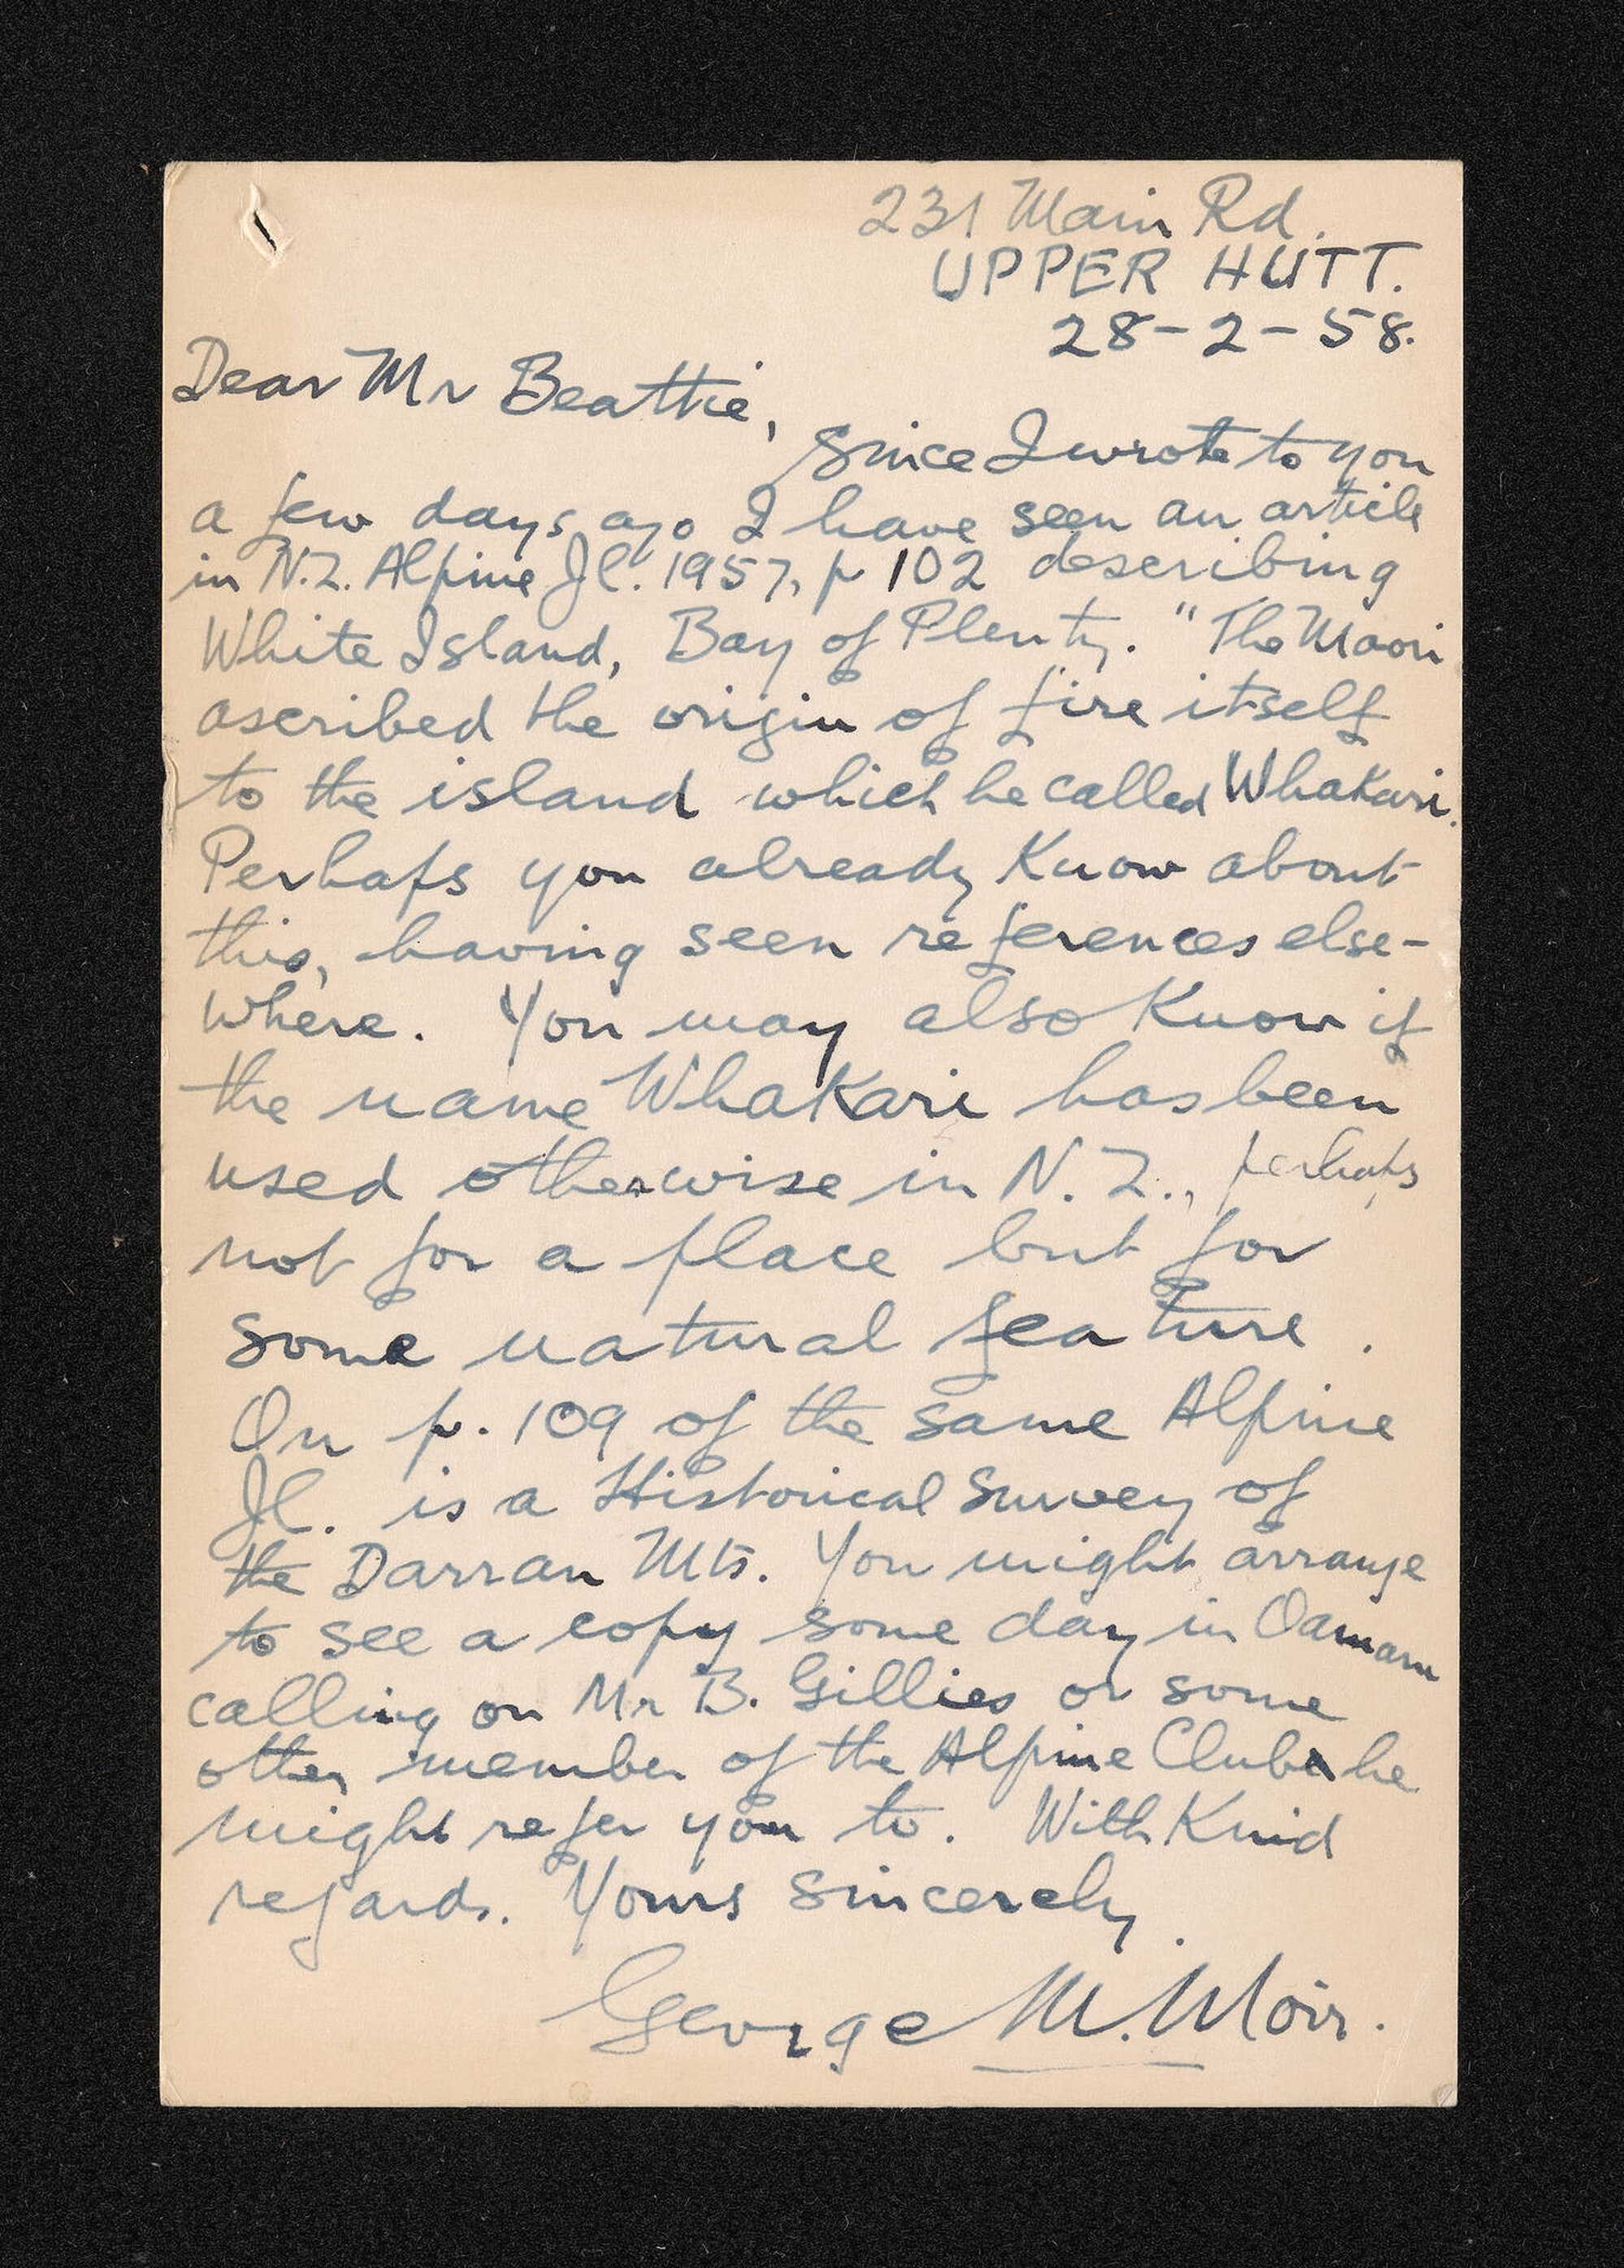 231 Main Rd.
UPPER HUTT.
28-2-58.
Dear Mr Beattie,
Since I wrote to you
a few days ago I have seen an article
in N.Z. Alpine Jl. 1957, p 102 describing
White Island, Bay of Plenty. "The Maori
ascribed the origin of fire itself
to the island which he called Whakari.
Perhaps you already know about
this, having seen references else-
where. You may also know if
the name Whakari has been
used otherwise in N.Z., perhaps
not for a place but for
some natural feature.
On p. 109 of the same Alpine
Jl. is a Historical Survey of
the Darran Mts. You might arrange
to see a copy some day in Oamaru
calling on Mr B. Gillies or some
other member of the Alpine Club he
might refer you to. With kind
regards. Yours sincerely.
George M. Moir.